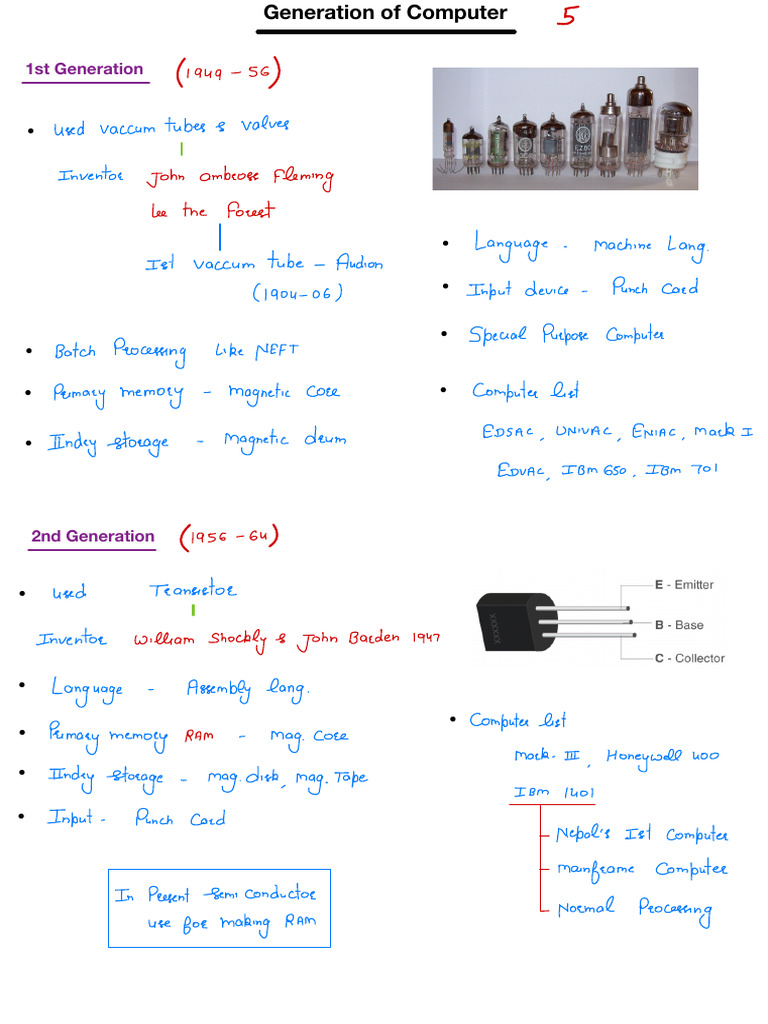 Generation of Computer 5
1st Generation (1949 - 56)
• used vaccum tubes & valves
Inventor John ambrose Fleming
Lee the Forest
Ist vaccum tube - Audion
(1904-06)
• Batch Processing like NEFT
• Primary memory - magnetic core
• IIndry storage - magnetic drum
• Language - machine Lang.
• Input device - Punch Card
• Special Purpose Computer
• Computer list
EDSAC, UNIVAC, ENIAC, Mark I
EDVAC, IBM 650, IBM 701
2nd Generation (1956 - 64)
• used Transistor
Inventor William Shockly & John Barden 1947
• Language - Assembly lang.
• Primary memory RAM - mag. core
• IIndry storage - mag. disk, mag. Tape
• Input - Punch Card
In Present semi conductor
use for making RAM
E - Emitter
B - Base
C - Collector
• Computer list
Mark-III, Honeywell 400
IBM 1401
Nepal's Ist Computer
mainframe Computer
Normal Processing